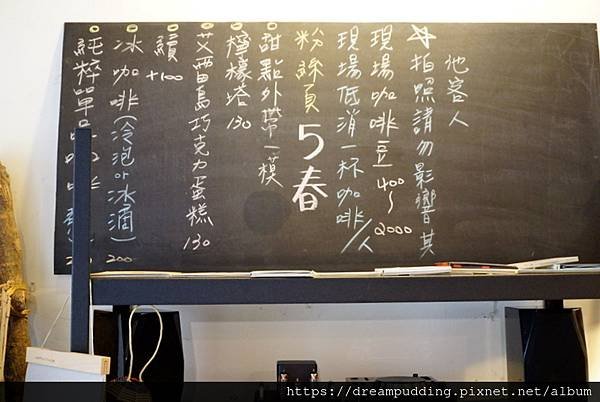 ☆拍照請勿影響其
他客人
現場咖啡豆 400~2000
現場低消一杯咖啡/人
粉絲頁 5春
甜點外帶一模
檸檬塔 130
艾雷島巧克力蛋糕 130
續 +100
冰咖啡(冷泡or冰滴) 200
純粹單品咖啡
https://dreampudding.pixnet.net/album